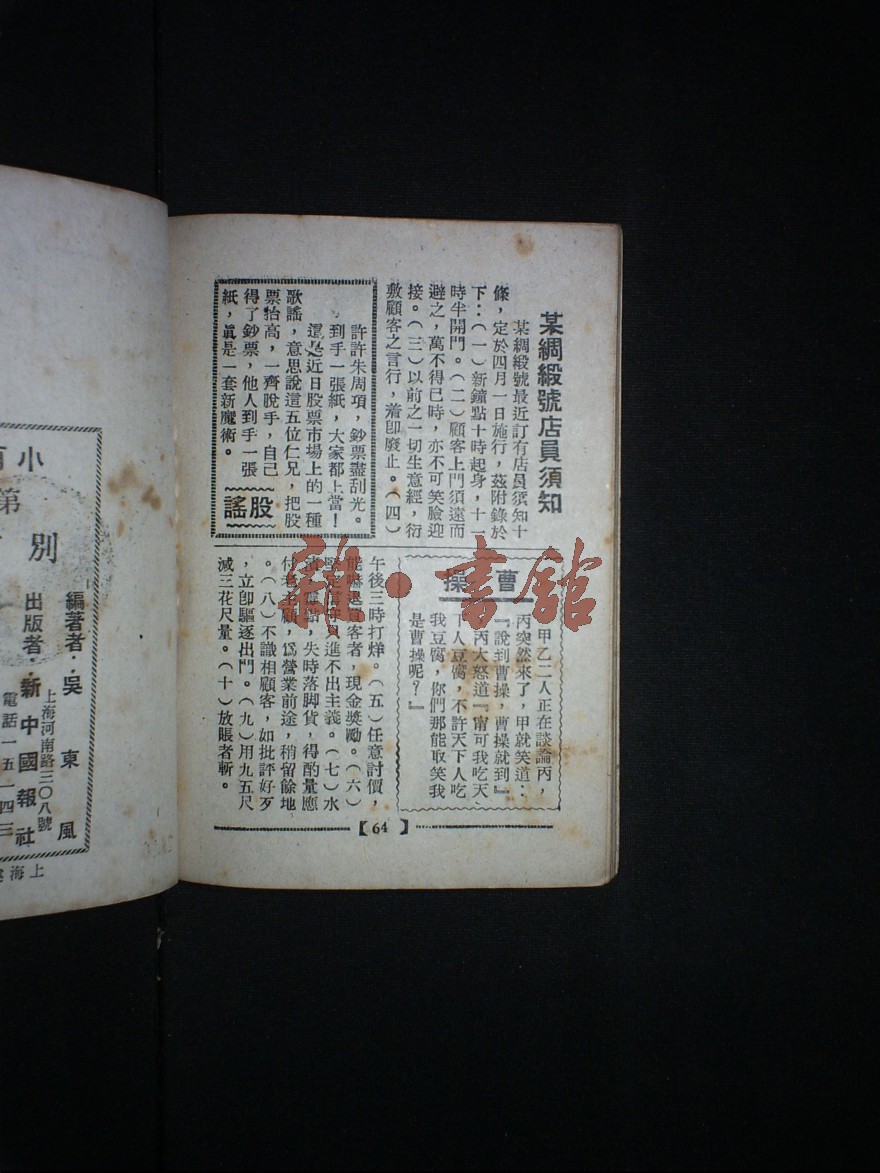 某綢緞號店員須知
某綢緞號最近訂有店員須知十
條，定於四月一日施行，茲附錄於
下：（一）新鐘點十時起身，十一
時半開門。（二）顧客上門須遠而
避之，萬不得已時，亦不可笑臉迎
接。（三）以前之一切生意經，衍
敷顧客之言行，着卽廢止。（四）
午後三時打烊。（五）任意討價，
客者，現金獎勵。（六）
進不出主義。（七）水
失時落脚貨，得酌量應
爲營業前途，稍留餘地
。（八）不識相顧客，如批評好歹
，立卽驅逐出門。（九）用九五尺
減三花尺量。（十）放賬者斬。
股謠
許許朱周項，鈔票盡刮光。
到手一張紙，大家都上當！
這是近日股票市場上的一種
歌謠，意思說這五位仁兄，把股
票抬高，一齊脫手，自己
得了鈔票，他人到手一張
紙，眞是一套新魔術。
曹操
甲乙二人正在談論丙，
丙突然來了，甲就笑道：
『說到曹操，曹操就到』
丙大怒道『甯可我吃天
了人豆腐，不許天下人吃
我豆腐，你們那能取笑我
是曹操呢？』
【64】
龍·書館
小
第
別
編著者·吳東風
出版者·新中國報社
上海河南路三〇八號
電話一五一四三
上海